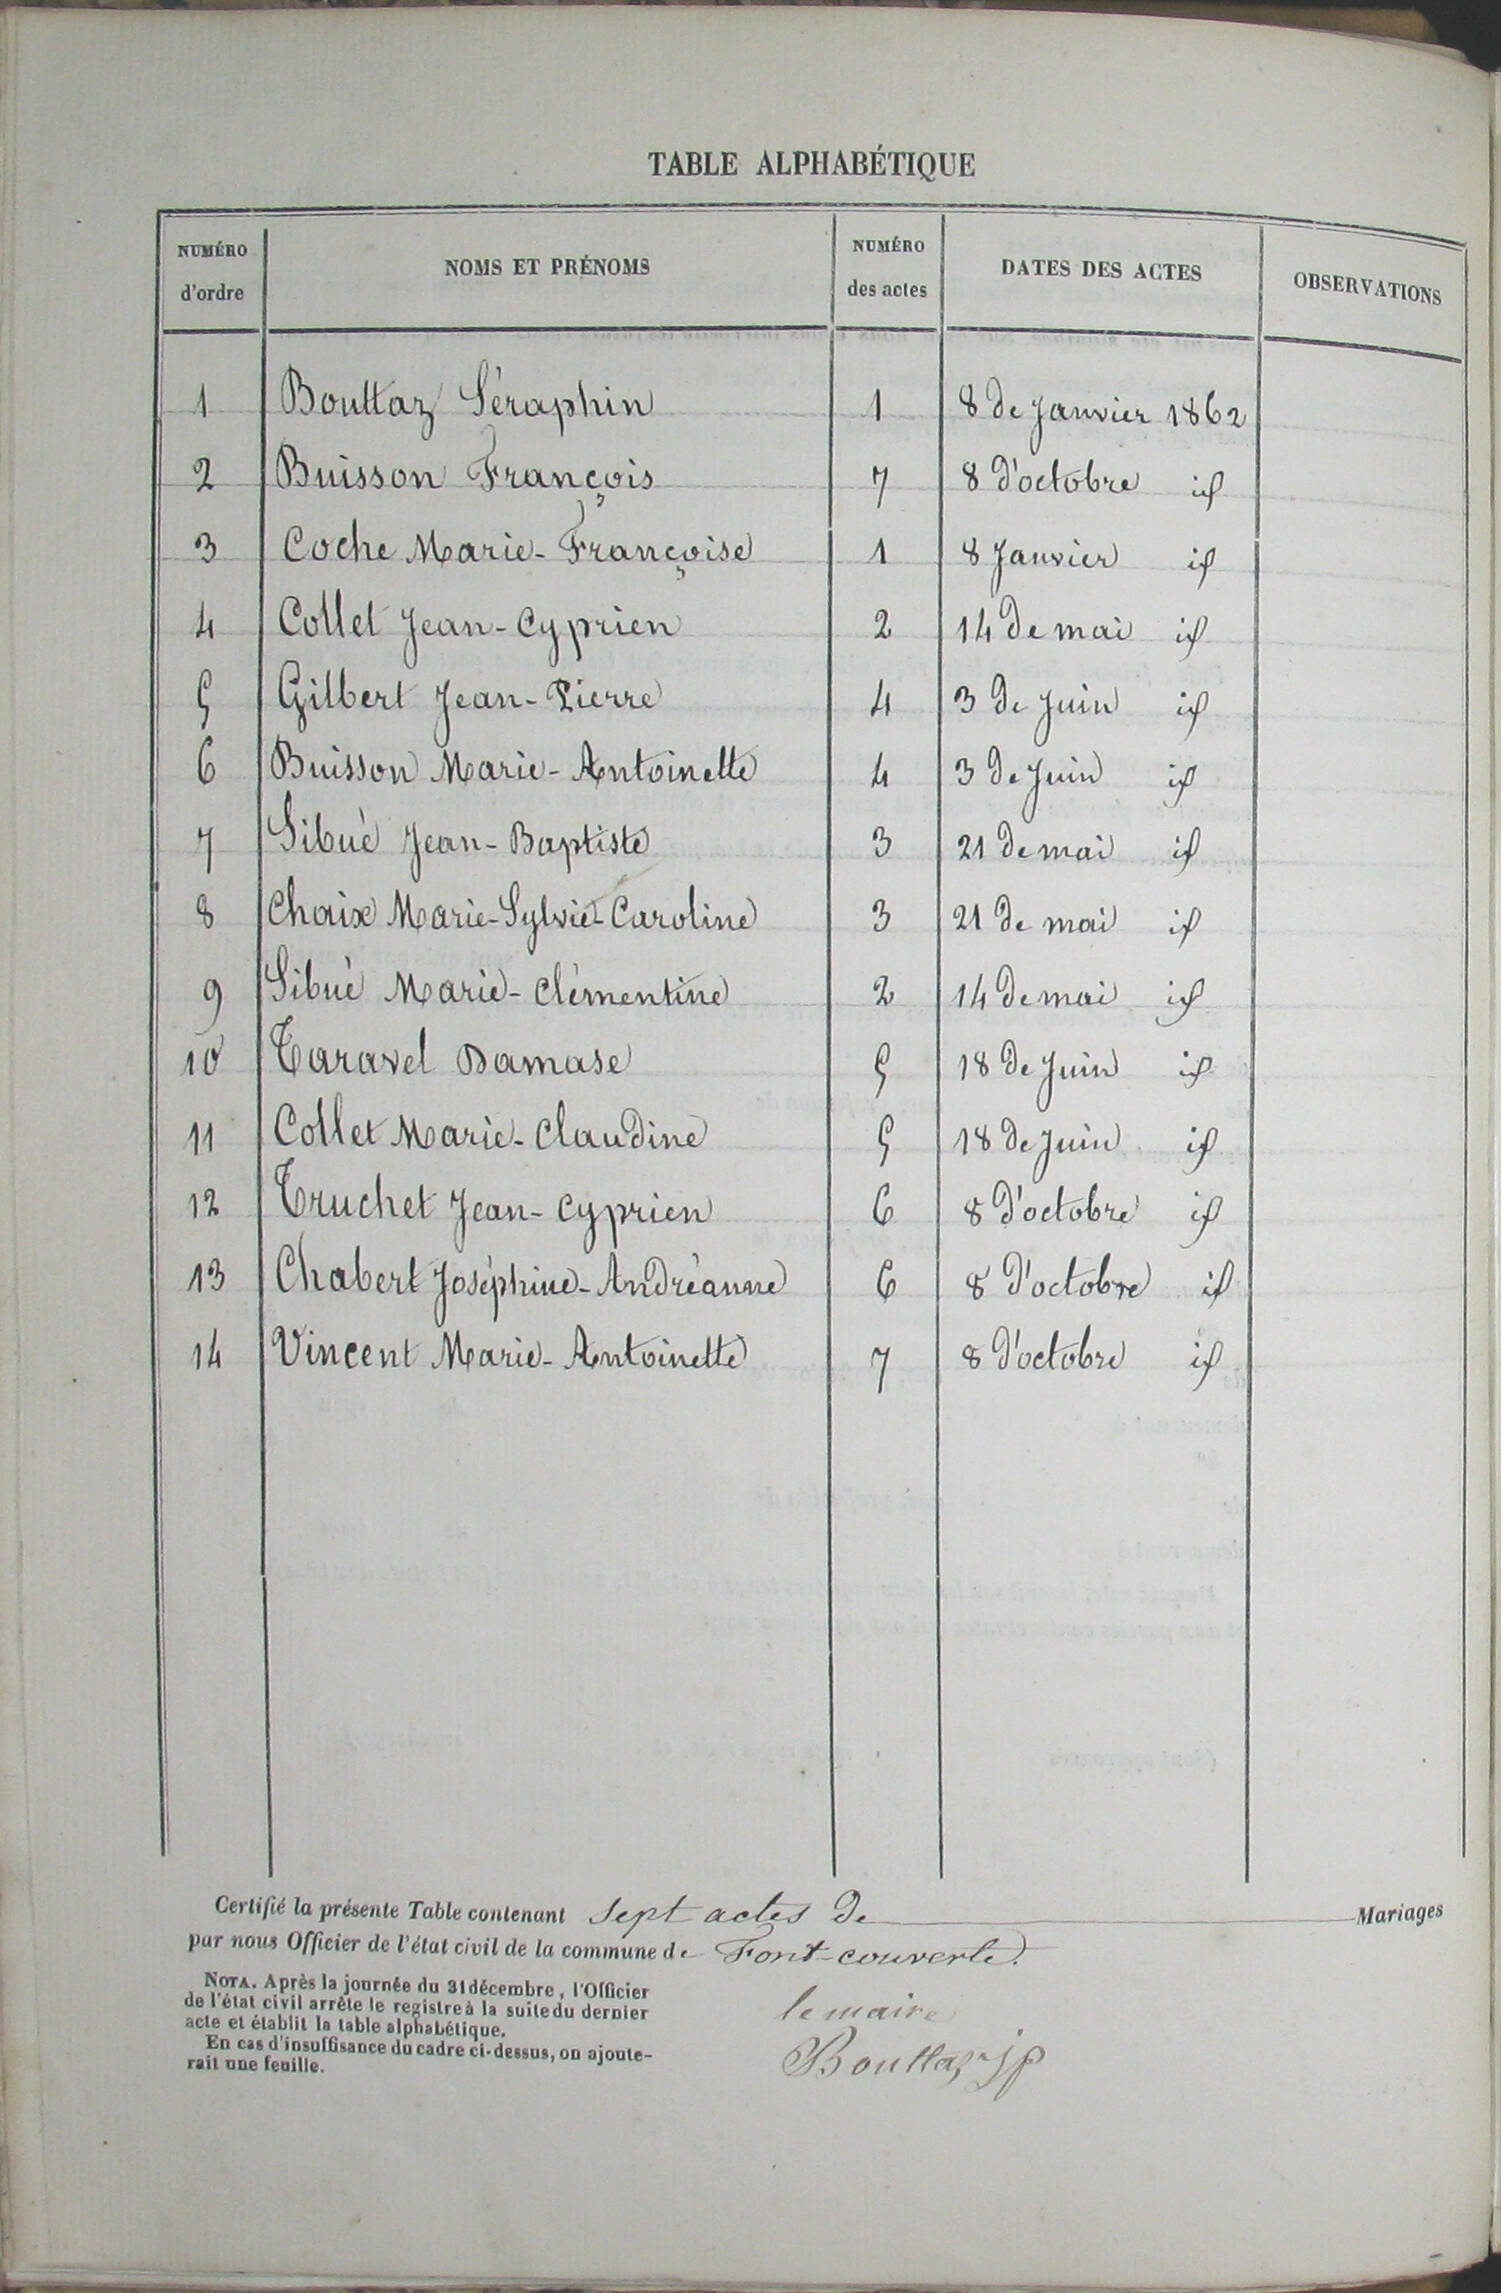 TABLE ALPHABÉTIQUE
NUMÉRO d'ordre | NOMS ET PRÉNOMS | NUMÉRO des actes | DATES DES ACTES | OBSERVATIONS
1 | Bouttaz Séraphin | 1 | 8 de Janvier 1862
2 | Buisson François | 7 | 8 d'octobre id
3 | Coche Marie-Françoise | 1 | 8 Janvier id
4 | Collet Jean-Cyprien | 2 | 14 de mai id
5 | Gilbert Jean-Pierre | 4 | 3 de Juin id
6 | Buisson Marie-Antoinette | 4 | 3 de Juin id
7 | Sibué Jean-Baptiste | 3 | 21 de mai id
8 | Chaix Marie-Sylvie-Caroline | 3 | 21 de mai id
9 | Sibué Marie-Clémentine | 2 | 14 de mai id
10 | Taravel Damase | 5 | 18 de Juin id
11 | Collet Marie-Claudine | 5 | 18 de Juin id
12 | Truchet Jean-Cyprien | 6 | 8 d'octobre id
13 | Chabert Joséphine-Andréanne | 6 | 8 d'octobre id
14 | Vincent Marie-Antoinette | 7 | 8 d'octobre id
Certifié la présente Table contenant sept actes de Mariages
par nous Officier de l'état civil de la commune de Font-couverte.
NOTA. Après la journée du 31 décembre, l'Officier
de l'état civil arrête le registre à la suite du dernier
acte et établit la table alphabétique.
En cas d'insuffisance du cadre ci-dessus, on ajoute-
rait une feuille.
le maire
Bouttaz jp